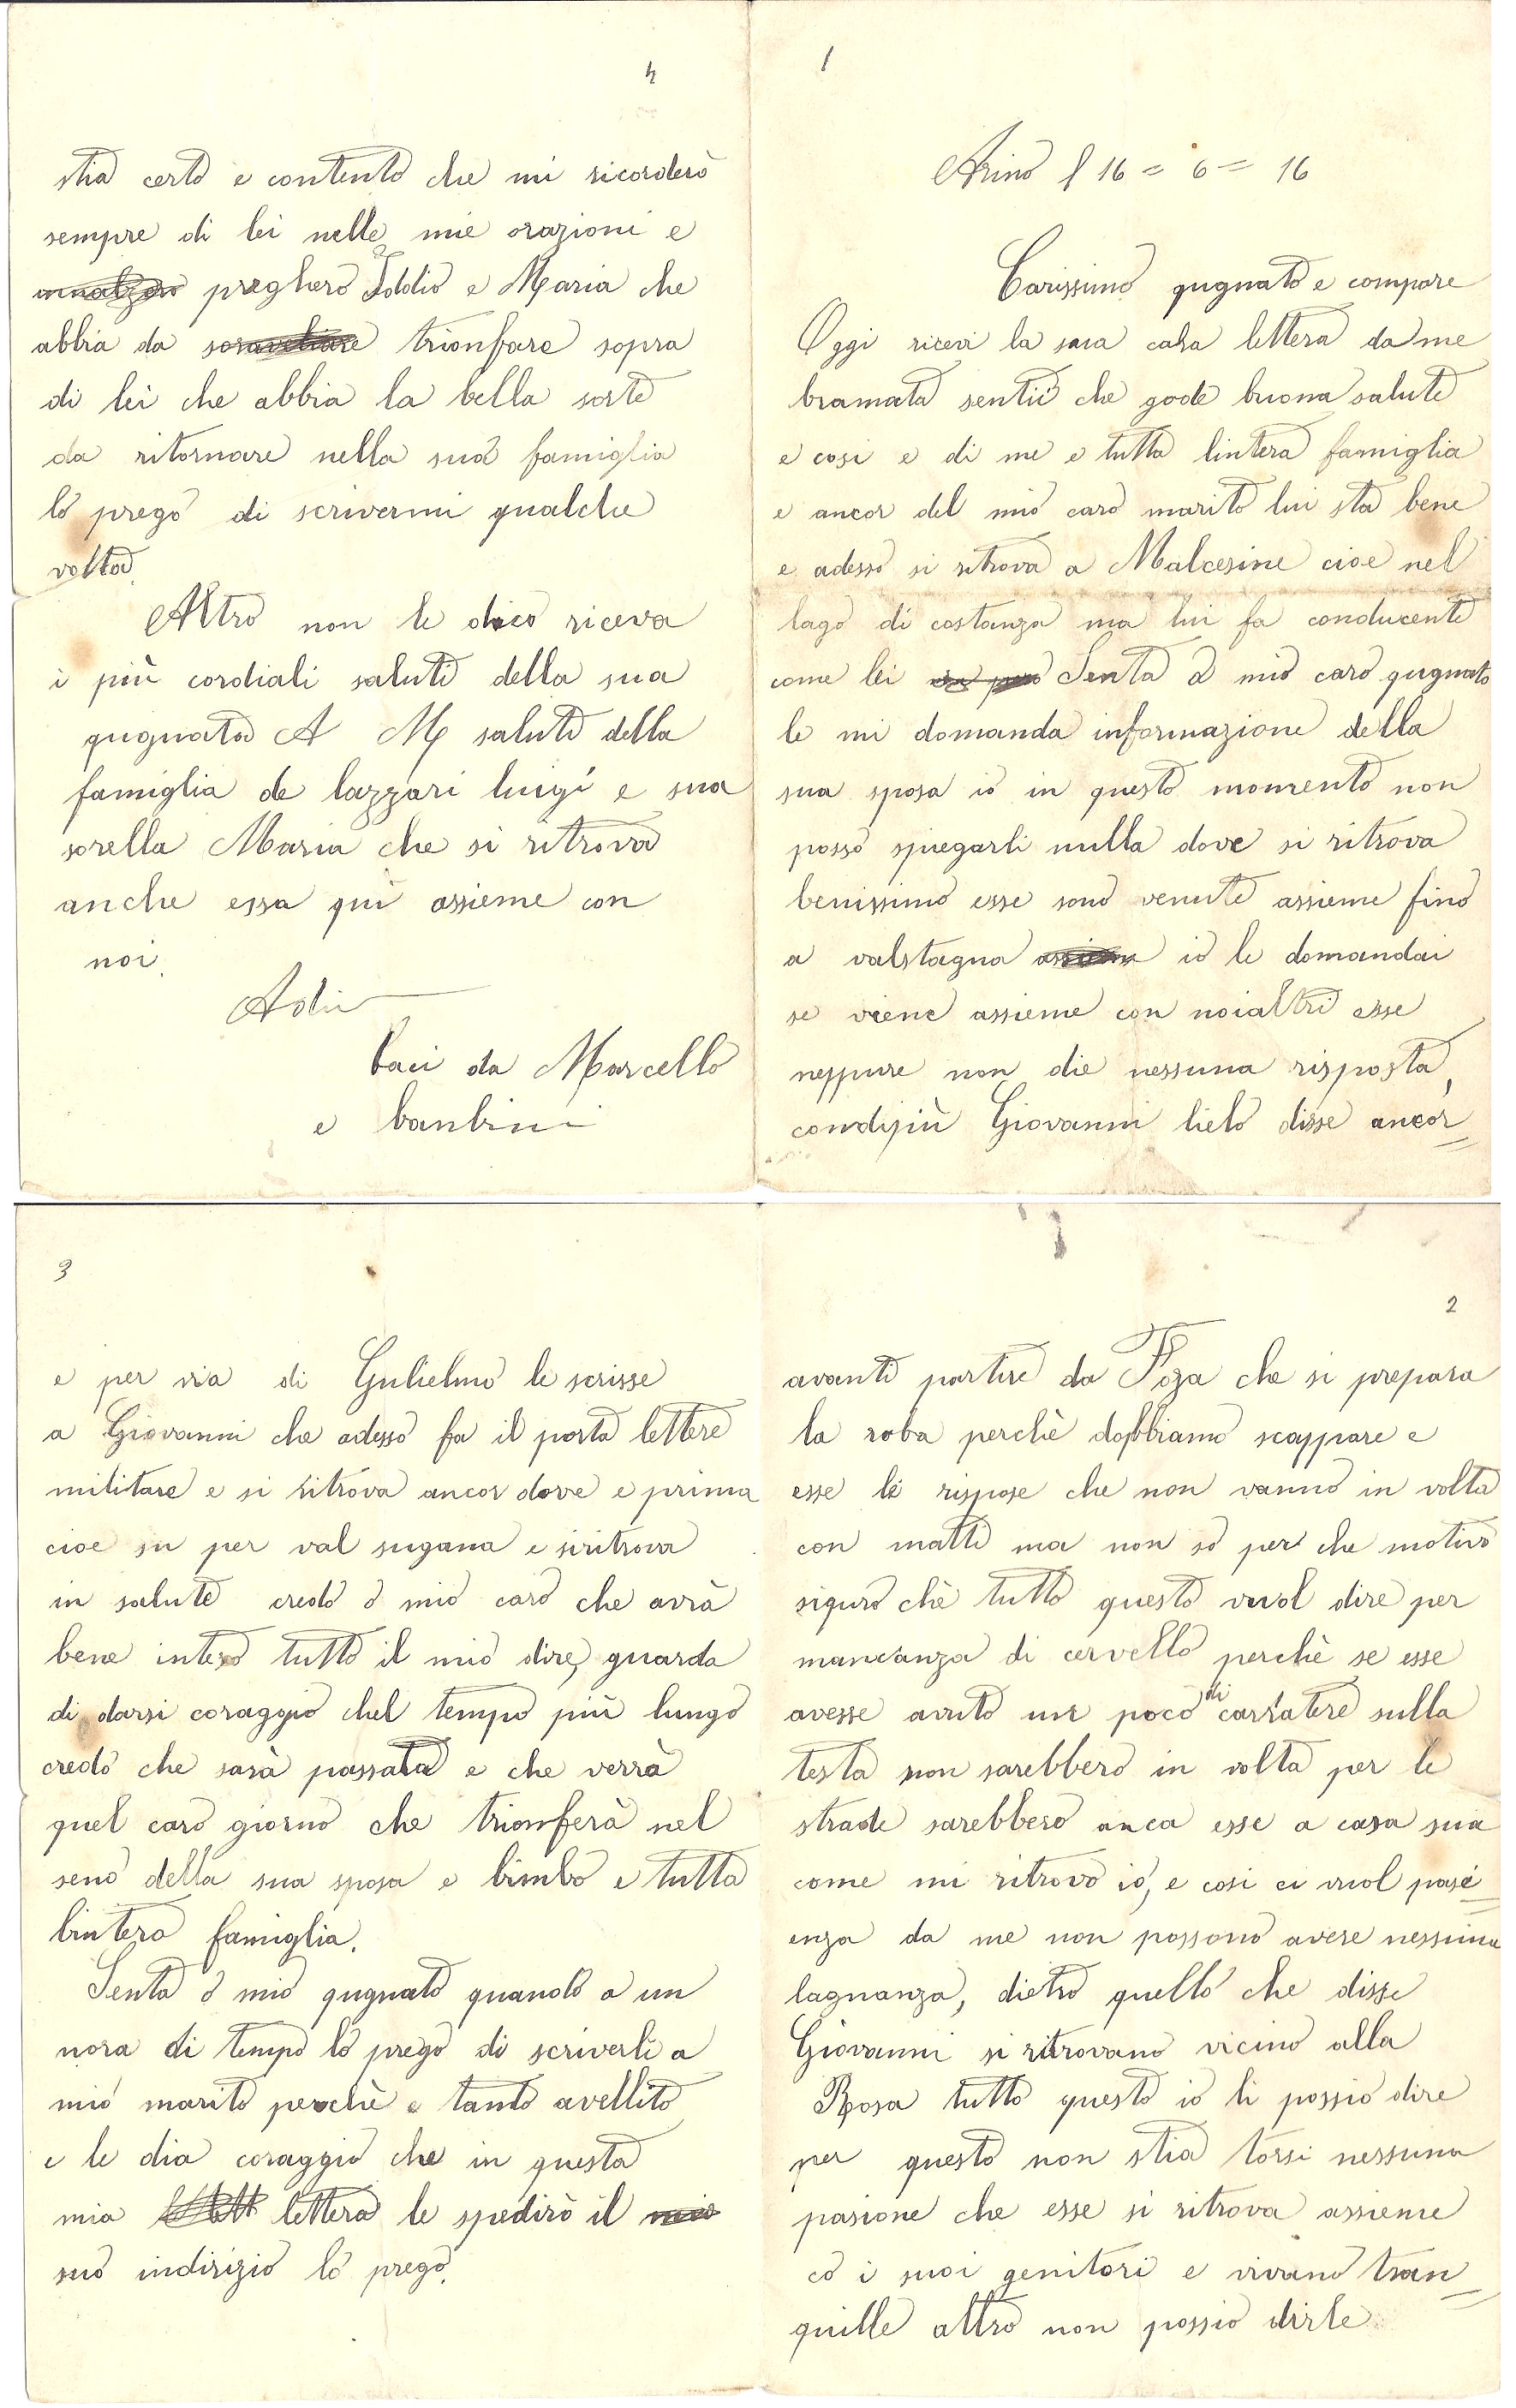 1
Arino l 16 = 6 = 16
Carissimo qugnato e compare
Oggi ricevi la sara cara lettera da me
bramata sentii che gode buona salute
e cosi e di me e tutta lintera famiglia
e ancor del mio caro marito lui sta bene
e adesso si ritrova a Malcesine cioe nel
lago di costanza ma lui fa conducente
come lei Senta o mio caro qugnato
le mi domanda informazione della
sua sposa io in questo momento non
posso spiegarli nulla dove si ritrova
benissimo esse sono venute assieme fino
a valstagna io le domandai
se viene assieme con noialtri esse
neppure non die nessuna risposta,
condipiù Giovanni lielo disse ancor=
2
avanti partire da Foza che si prepara
la roba perchè dobbiamo scappare e
esse le rispose che non vanno in volta
con matti ma non so per che motivo
siguro chè tutto questo vuol dire per
mancanza di cervello perchè se esse
avesse avuto un poco di carratere sulla
testa non sarebbero in volta per le
strade sarebbero anca esse a casa sua
come mi ritrovo io, e cosi ci vuol pasi=
enza da me non possono avere nessuna
lagnanza, dietro quello che disse
Giovanni si ritrovano vicino alla
Rosa tutto questo io li possio dire
per questo non stia torsi nessuna
pasione che esse si ritrova assieme
co i suoi genitori e vivano tran=
quille altro non possio dirle
3
e per via di Gulielmo le scrisse
a Giovanni che adesso fa il porta lettere
militare e si ritrova ancor dove e prima
cioe su per val sugana e siritrova
in salute credo o mio caro che avrà
bene inteso tutto il mio dire, guarda
di darsi coraggio chel tempo più lungo
credo che sarà passata e che verrà
quel caro giorno che trionferà nel
seno della sua sposa e bimbo e tutta
lintera famiglia.
Senta o mio qugnato quando a un
nora di tempo lo prego di scriverli a
mio marito perchè e tanto avellito
e le dia coraggio che in questa
mia lettera le spedirò il
suo indirizio lo prego.
4
stia certo e contento che mi ricorderò
sempre di lei nelle mie orazioni e
pregherò Iddio e Maria che
abbia da trionfare sopra
di lei che abbia la bella sorte
da ritornare nella sua famiglia
lo prego di scrivermi qualche
volta.
Altro non le dico riceva
i più cordiali saluti della sua
qugnata A M saluti della
famiglia de lazzari luigi e sua
sorella Maria che si ritrova
anche essa qui assieme con
noi.
Adio
baci da Marcello
e bambini